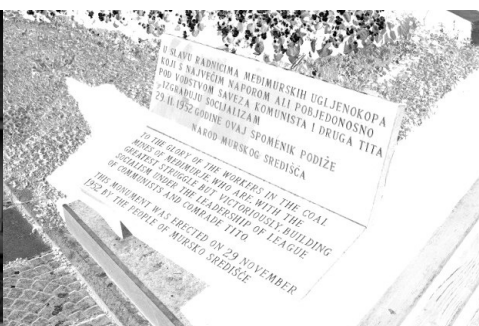 U SLAVU RADNICIMA MEĐIMURSKIH UGLJENOKOPA
KOJI S NAJVEĆIM NAPOROM ALI POBJEDONOSNO
POD VODSTVOM SAVEZA KOMUNISTA I DRUGA TITA
IZGRAĐUJU SOCIJALIZAM
29. II. 1952. GODINE OVAJ SPOMENIK PODIŽE
NAROD MURSKOG SREDIŠĆA
TO THE GLORY OF THE WORKERS IN THE COAL
MINES OF MEĐIMURJE, WHO ARE, WITH THE
GREATEST STRUGGLE BUT VICTORIOUSLY, BUILDING
SOCIALISM UNDER THE LEADERSHIP OF LEAGUE
OF COMMUNISTS AND COMRADE TITO
THIS MONUMENT WAS ERECTED ON 29 NOVEMBER
1952 BY THE PEOPLE OF MURSKO SREDIŠĆE